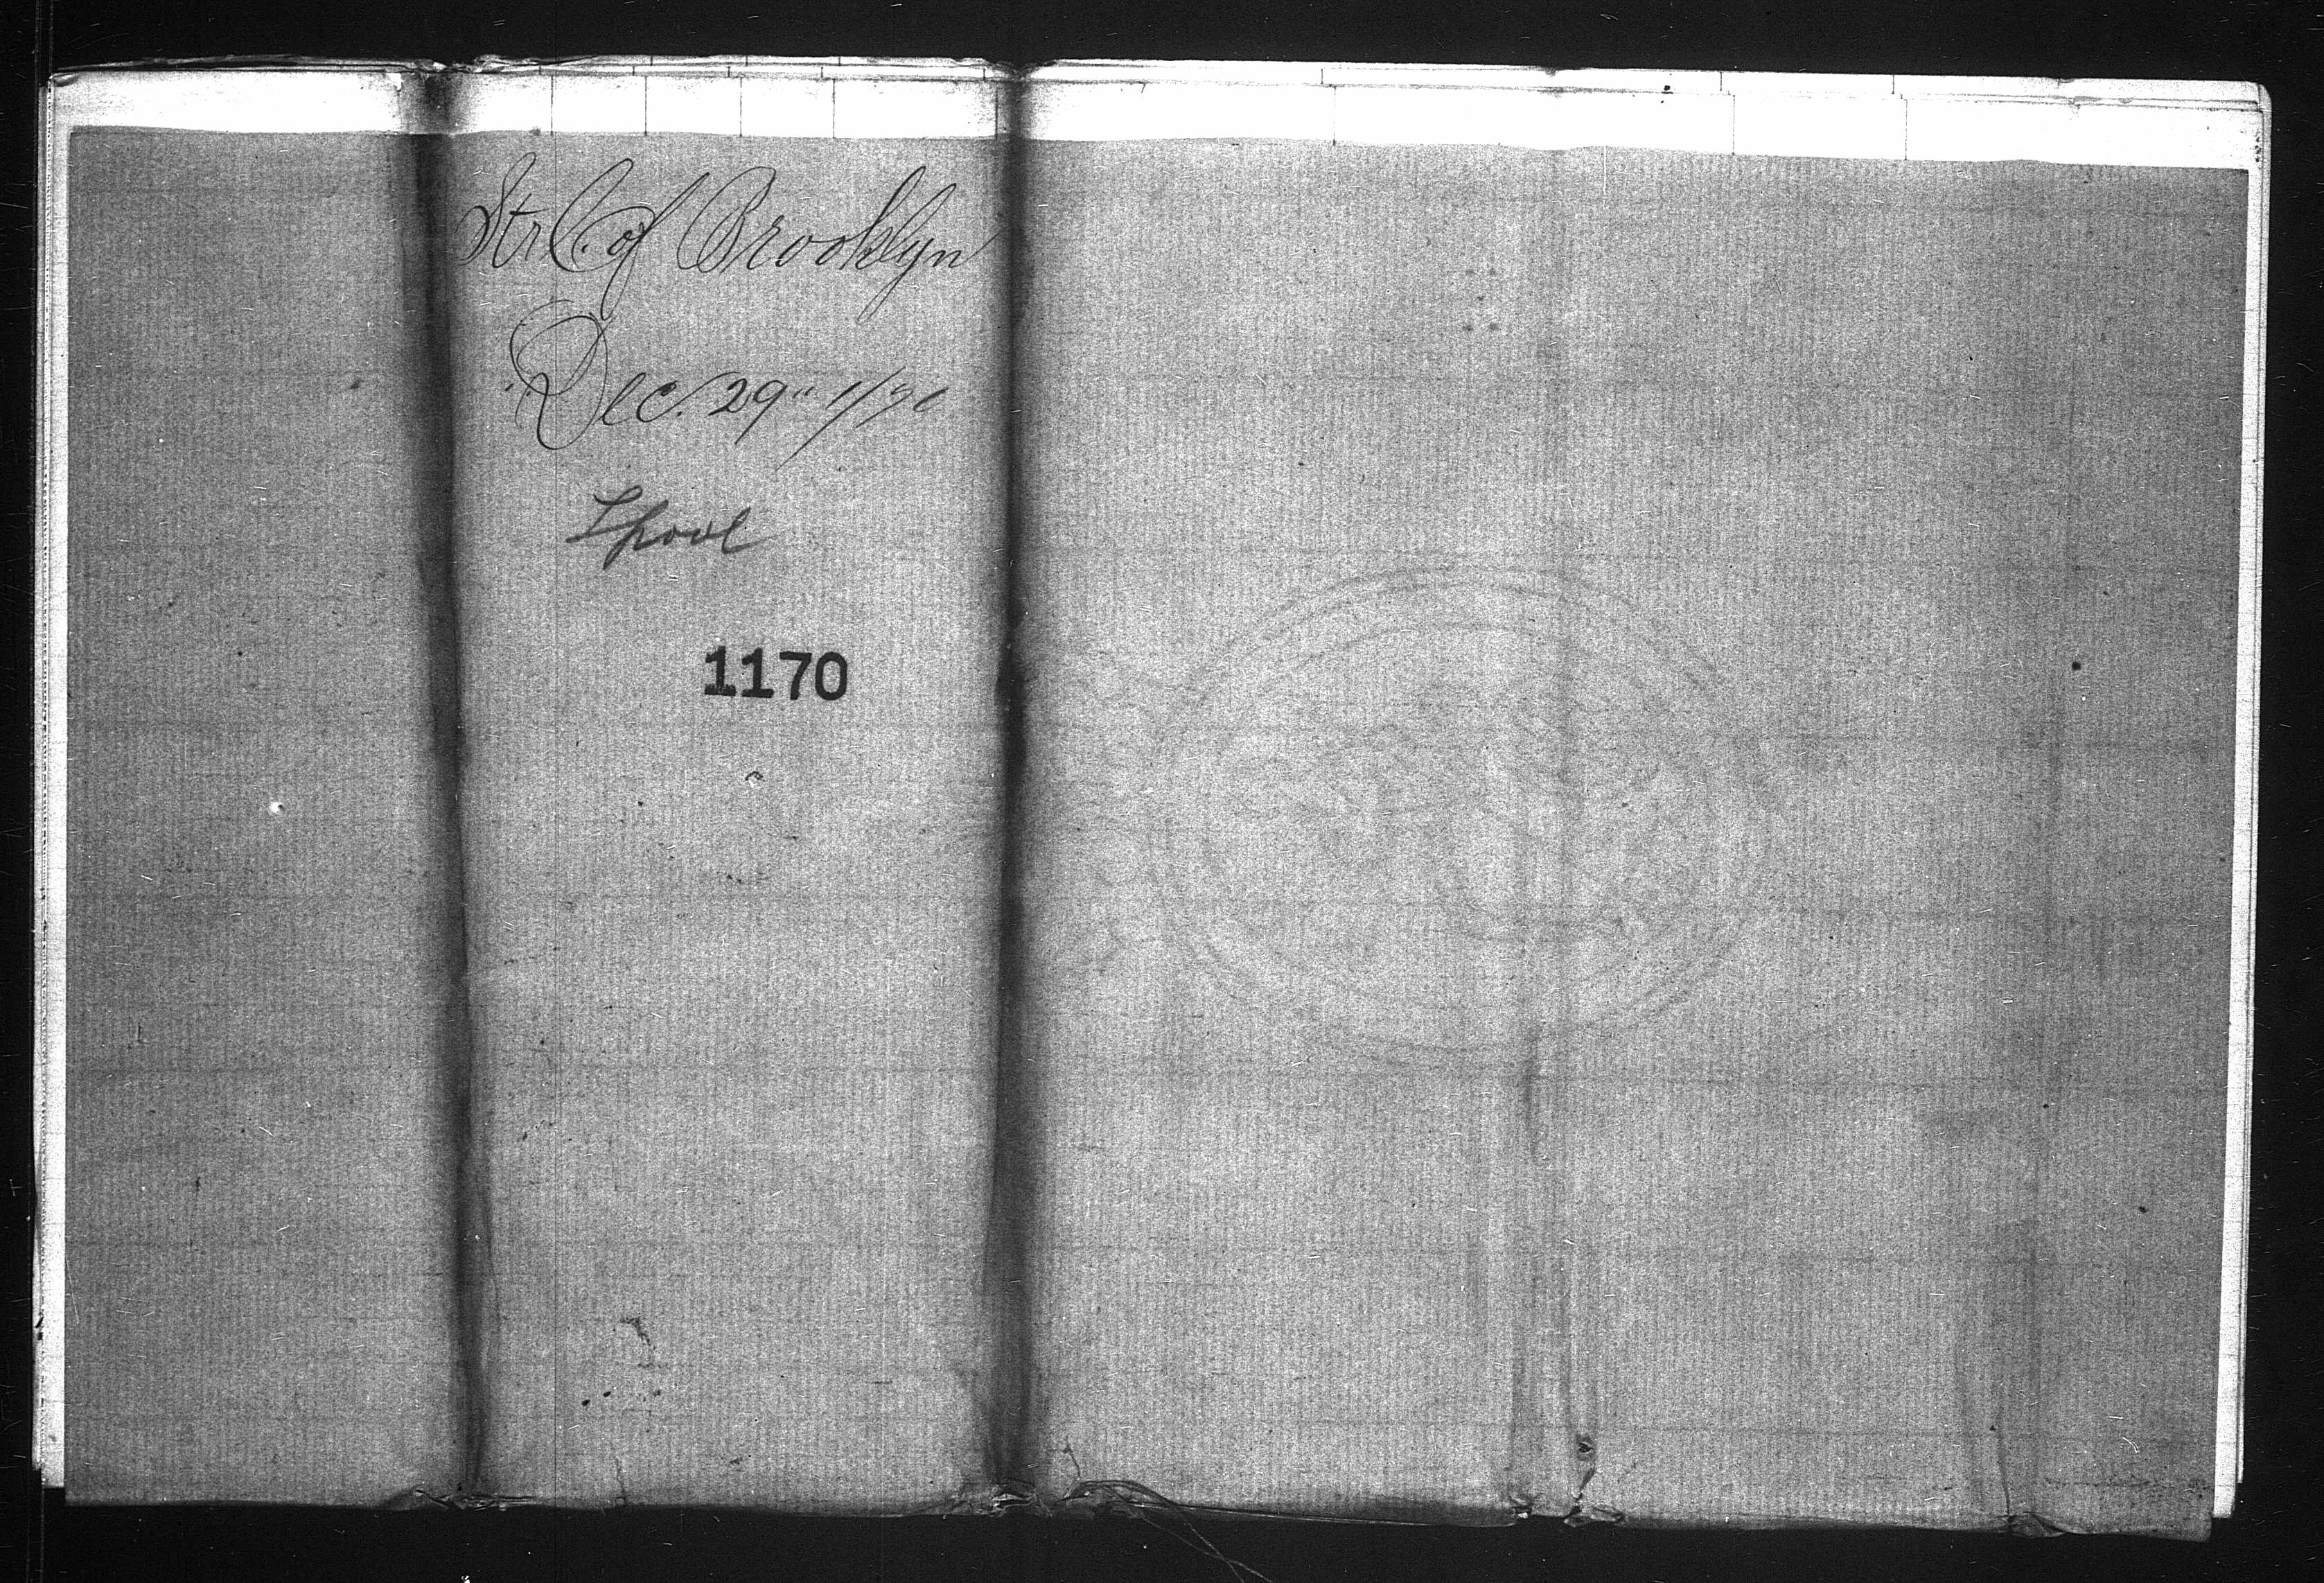 Str C. of Brooklyn
Dec. 29" 1/90
Lpool
1170